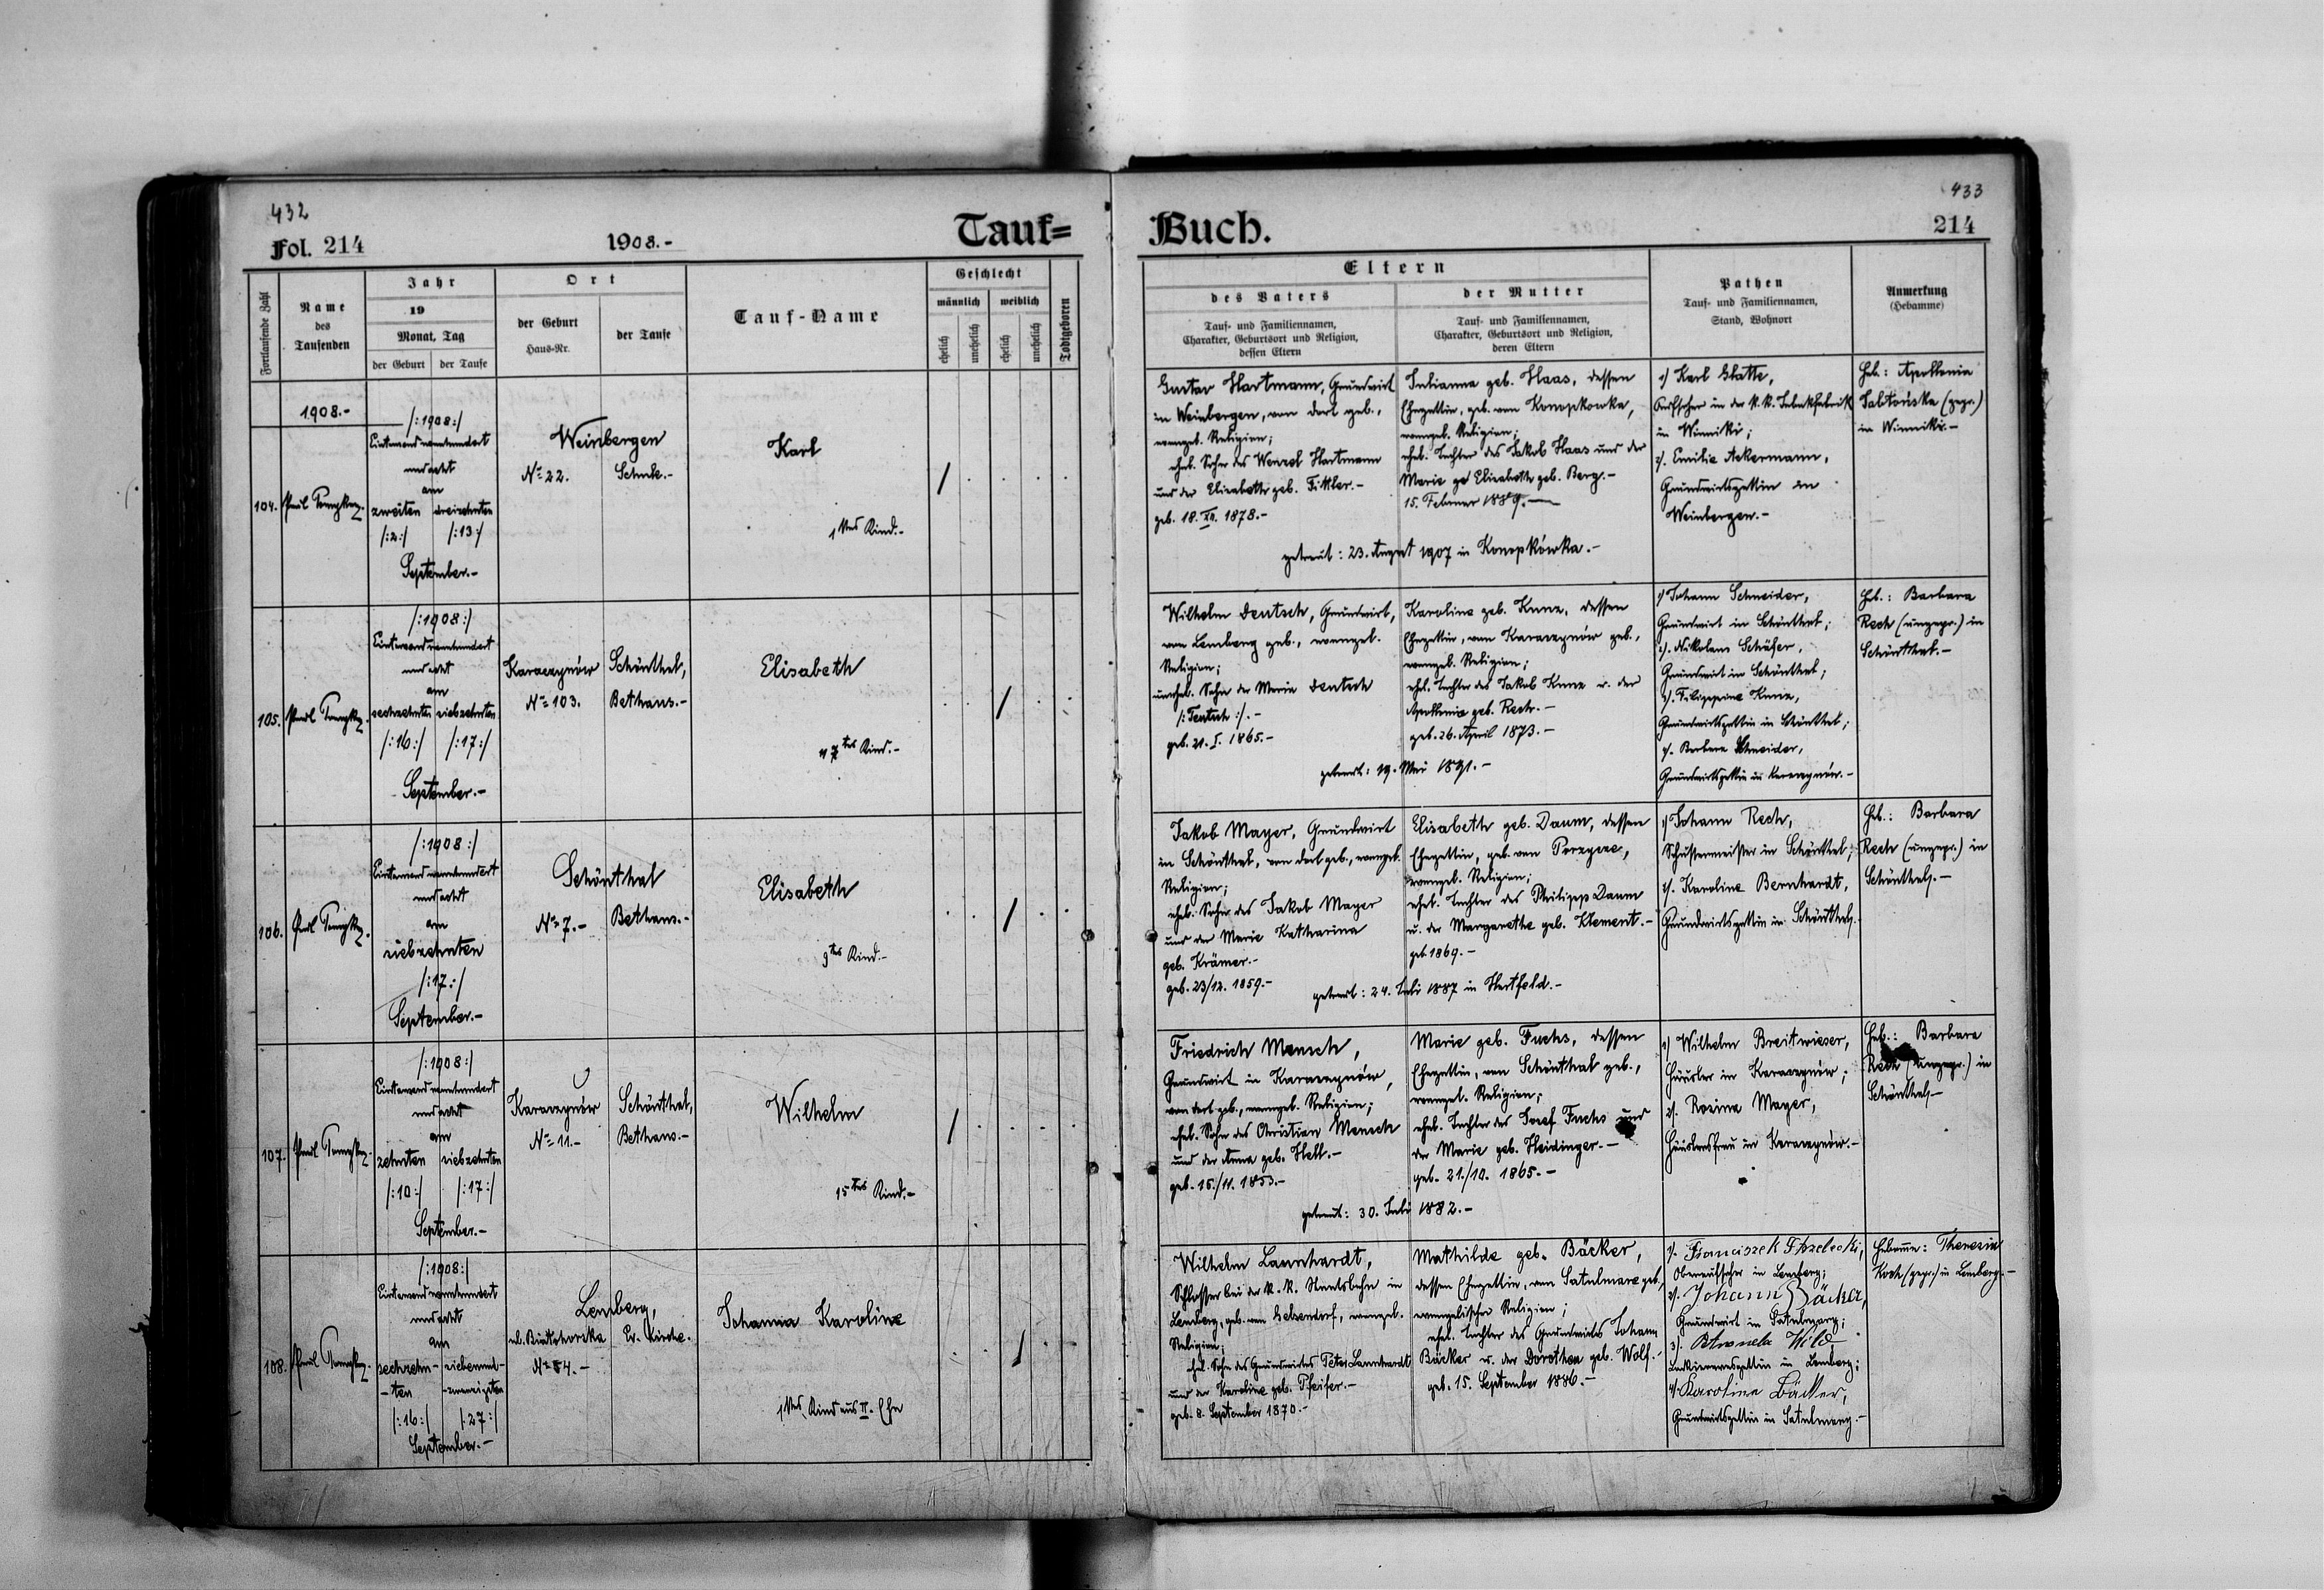 432
Fol. 214
1908.-
Tauf=
Fortlaufende Zahl
Name
des
Taufenden
Jahr
19
Monat, Tag
der Geburt
der Taufe
Ort
der Geburt
Haus-Nr.
der Taufe
Tauf-Name
Geschlecht
männlich
weiblich
ehelich
unehelich
ehelich
unehelich
Todtgeboren
1908.-
104.
/:1908:/
Eintausendneunhundert
und acht
am
zweiten
dreizehnten
/:2:/
/:13:/
September.-
Weinbergen
No 22.
Schule.-
Karl
1tes Kind.-
105.
/:1908:/
Eintausendneunhundert
und acht
am
sechzehnten
siebzehnten
/:16:/
/:17:/
September.-
Karaczynów
No 103.
Schönthal,
Bethaus.-
Elisabeth
Kind.-
106.
/:1908:/
Eintausendneunhundert
und acht
am
siebzehnten
/:17:/
September.-
Schönthal
No 7.-
Bethaus.-
Elisabeth
9tes Kind.-
107.
/:1908:/
Eintausendneunhundert
und acht
am
zehnten
siebzehnten
/:10:/
/:17:/
September.-
Karaczynów
No 11.-
Schönthal,
Bethaus.-
Wilhelm
15tes Kind.-
108.
/:1908:/
Eintausendneunhundert
und acht
am
sechzehn-
-ten
siebenund-
-zwanzigsten
/:16:/
/:27:/
September.-
Lemberg,
Ev. Kirche.
Johanna Karoline
1tes Kind aus II. Ehe
433
Buch.
214
Eltern
des Vaters
Tauf- und Familiennamen,
Charakter, Geburtsort und Religion,
dessen Eltern
der Mutter
Tauf- und Familiennamen,
Charakter, Geburtsort und Religion,
deren Eltern
Pathen
Tauf- und Familiennamen,
Stand, Wohnort
Anmerkung
(Hebamme)
Gustav Hartmann, Grundwirt
in Weinbergen, von dort geb.,
evangel. Religion;
ehel. Sohn des Wenzel Hartmann
und der Elisabeth geb. Fittler.-
geb. 18. 1878.-
Julianna geb. Haas, dessen
Ehegattin, geb. von Konopkowka,
evangel. Religion;
ehel. Tochter des Jakob Haas und der
Marie Elisabeth geb. Berg.-
15. Februar 1889.-
getraut: 23. August 1907 in Konopkówka.-
1) Karl Glatte,
Aufseher in der k.k. Tabakfabrik
in Winniki;
2/. Emilie Ackermann,
Grundwirtsgattin in
Weinbergen.-
Heb.: Apollonia
(gepr.)
in Winniki.-
Wilhelm Deutsch, Grundwirt,
von Lemberg geb., evangel.
Religion;
unehel. Sohn der Maria Deutsch
/:Teutsch:/.-
geb. 21. I. 1865.-
Karoline geb. Kunz, dessen
Ehegattin, von Karaczynów geb.,
evangel. Religion;
ehel. Tochter des Jakob Kunz u. der
Apollonia geb. Rech.-
geb. 26. April 1873.-
getraut: 19. Mai 1891.-
1) Johann Schneider,
Grundwirt in Schönthal;
2/. Nikolaus Schäfer,
Grundwirt in Schönthal;
3/. Filippine Kunz,
Grundwirtsgattin in Schönthal;
4/. Barbara Schneider,
Grundwirtsgattin in Karaczynów.-
Heb.: Barbara
Rech (ungepr.) in
Schönthal.-
Jakob Mayer, Grundwirt
in Schönthal, von dort geb., evangel.
Religion;
ehel. Sohn des Jakob Mayer
und der Marie Katharina
geb. Krämer.-
geb. 23/12. 1859.-
Elisabeth geb. Daum, dessen
Ehegattin, geb. von
evangel. Religion;
ehel. Tochter des Philipp Daum
u. der Margarethe geb. Klement.-
geb. 1869.-
getraut: 24. Juli 1887 in Hartfeld.-
1) Johann Rech,
in Schönthal;
2/. Karoline Bernhardt,
Grundwirtsgattin in Schönthal.
Heb.: Barbara
Rech (ungepr.) in
Schönthal.-
Friedrich Mensch,
Grundwirt in Karaczynów,
von dort geb., evangel. Religion;
ehel. Sohn des Christian Mensch
und der Anna geb. Hell.-
geb. 16./11. 1853.-
Marie geb. Fuchs, dessen
Ehegattin, von Schönthal geb.,
evangel. Religion;
ehel. Tochter des Josef Fuchs und
der Marie geb. Heidinger.-
geb. 21./10. 1865.-
getraut: 30. Juli 1882.-
1) Wilhelm Breitwieser,
Häusler in Karaczynów;
2/. Rosina Mayer,
Häuslersfrau in Karaczynów.-
Heb.: Barbara
Rech (ungepr.) in
Schönthal.-
Wilhelm Lannhardt,
Schlosser bei der k.k. Staatsbahn in
Lemberg, geb. von Gelsendorf, evangel.
Religion;
ehel. Sohn des Grundwirtes Peter Lannhardt
und der Karoline geb. Pfeifer.-
geb. 8. September 1870.-
Mathilde geb. Bäcker,
dessen Ehegattin, von Satulmare geb.,
evangelischer Religion;
ehel. Tochter des Grundwirtes Johann
Bäcker u. der Dorothea geb. Wolf.-
geb. 15. September 1886.-
1/. Franciszek
Oberaufseher in Lemberg;
2/. Johann Bäcker,
Grundwirt in
3) Wild
in Lemberg;
4/. Karolina Bäcker,
Grundwirtsgattin in
Hebamme: Theresia
Koch (gepr.) in Lemberg.-